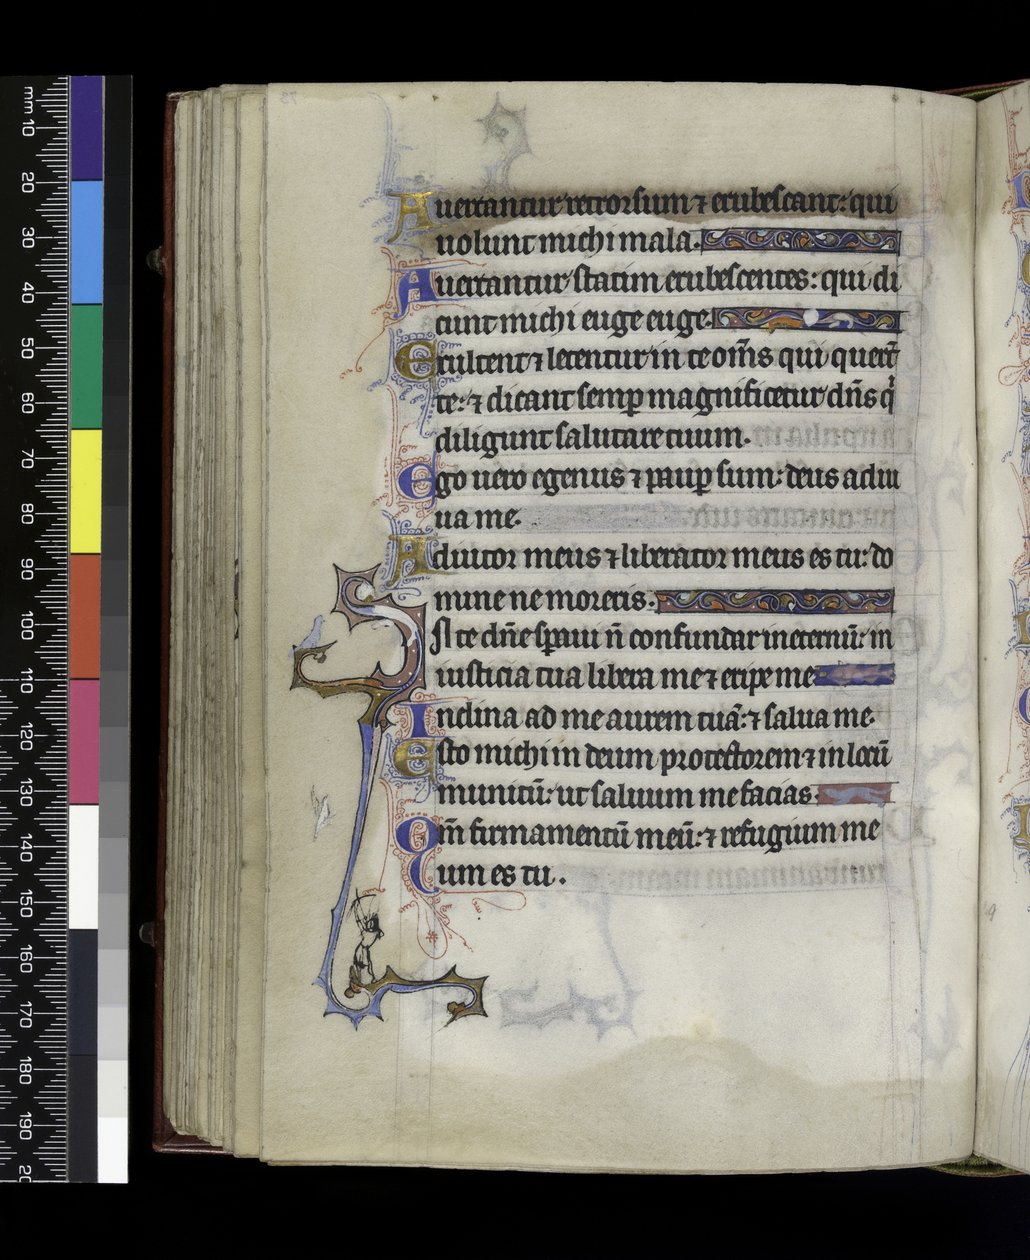 Auertantur retrorsum ⁊ erubescant: qui
uolunt michi mala.
Auertantur statim erubescentes: qui di
cunt michi euge euge.
Exultent ⁊ letentur in te om̄s qui quert̄
te: ⁊ dicant semꝑ magnificetur dn̄s qͥ
diligunt salutare tuum.
Ego uero egenus ⁊ pauꝑ sum: deus adiu
ua me.
Adiutor meus ⁊ liberator meus es tu: do
mine ne moreris.
IN te dn̄e sꝑaui n̄ confundar in eternū: in
iusticia tua libera me ⁊ eripe me
Inclina ad me aurem tuā: ⁊ salua me.
Esto michi in deum protectorem ⁊ in locū
munitū: ut saluum me facias.
Qm̄ firmamentū meū: ⁊ refugium me
um es tu.
mm 10 20 30 40 50 60 70 80 90 100 110 120 130 140 150 160 170 180 190